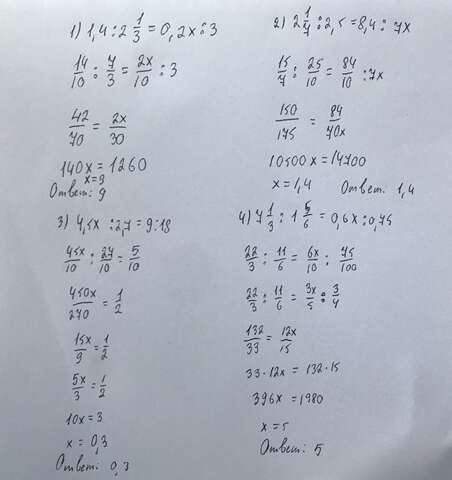 1) 1,4 : 2 1/3 = 0,2x : 3
14/10 : 7/3 = 2x/10 : 3
42/70 = 2x/30
140x = 1260
x = 9
Ответ: 9
2) 2 1/7 : 2,5 = 8,4 : 7x
15/7 : 25/10 = 84/10 : 7x
150/175 = 84/70x
10500x = 14700
x = 1,4 Ответ: 1,4
3) 4,5x : 2,7 = 9:18
45x/10 : 27/10 = 5/10
450x/270 = 1/2
15x/9 = 1/2
5x/3 = 1/2
10x = 3
x = 0,3
Ответ: 0,3
4) 7 1/3 : 1 5/6 = 0,6x : 0,75
22/3 : 11/6 = 6x/10 : 75/100
22/3 : 11/6 = 3x/5 : 3/4
132/33 = 12x/15
33·12x = 132·15
396x = 1980
x = 5
Ответ: 5